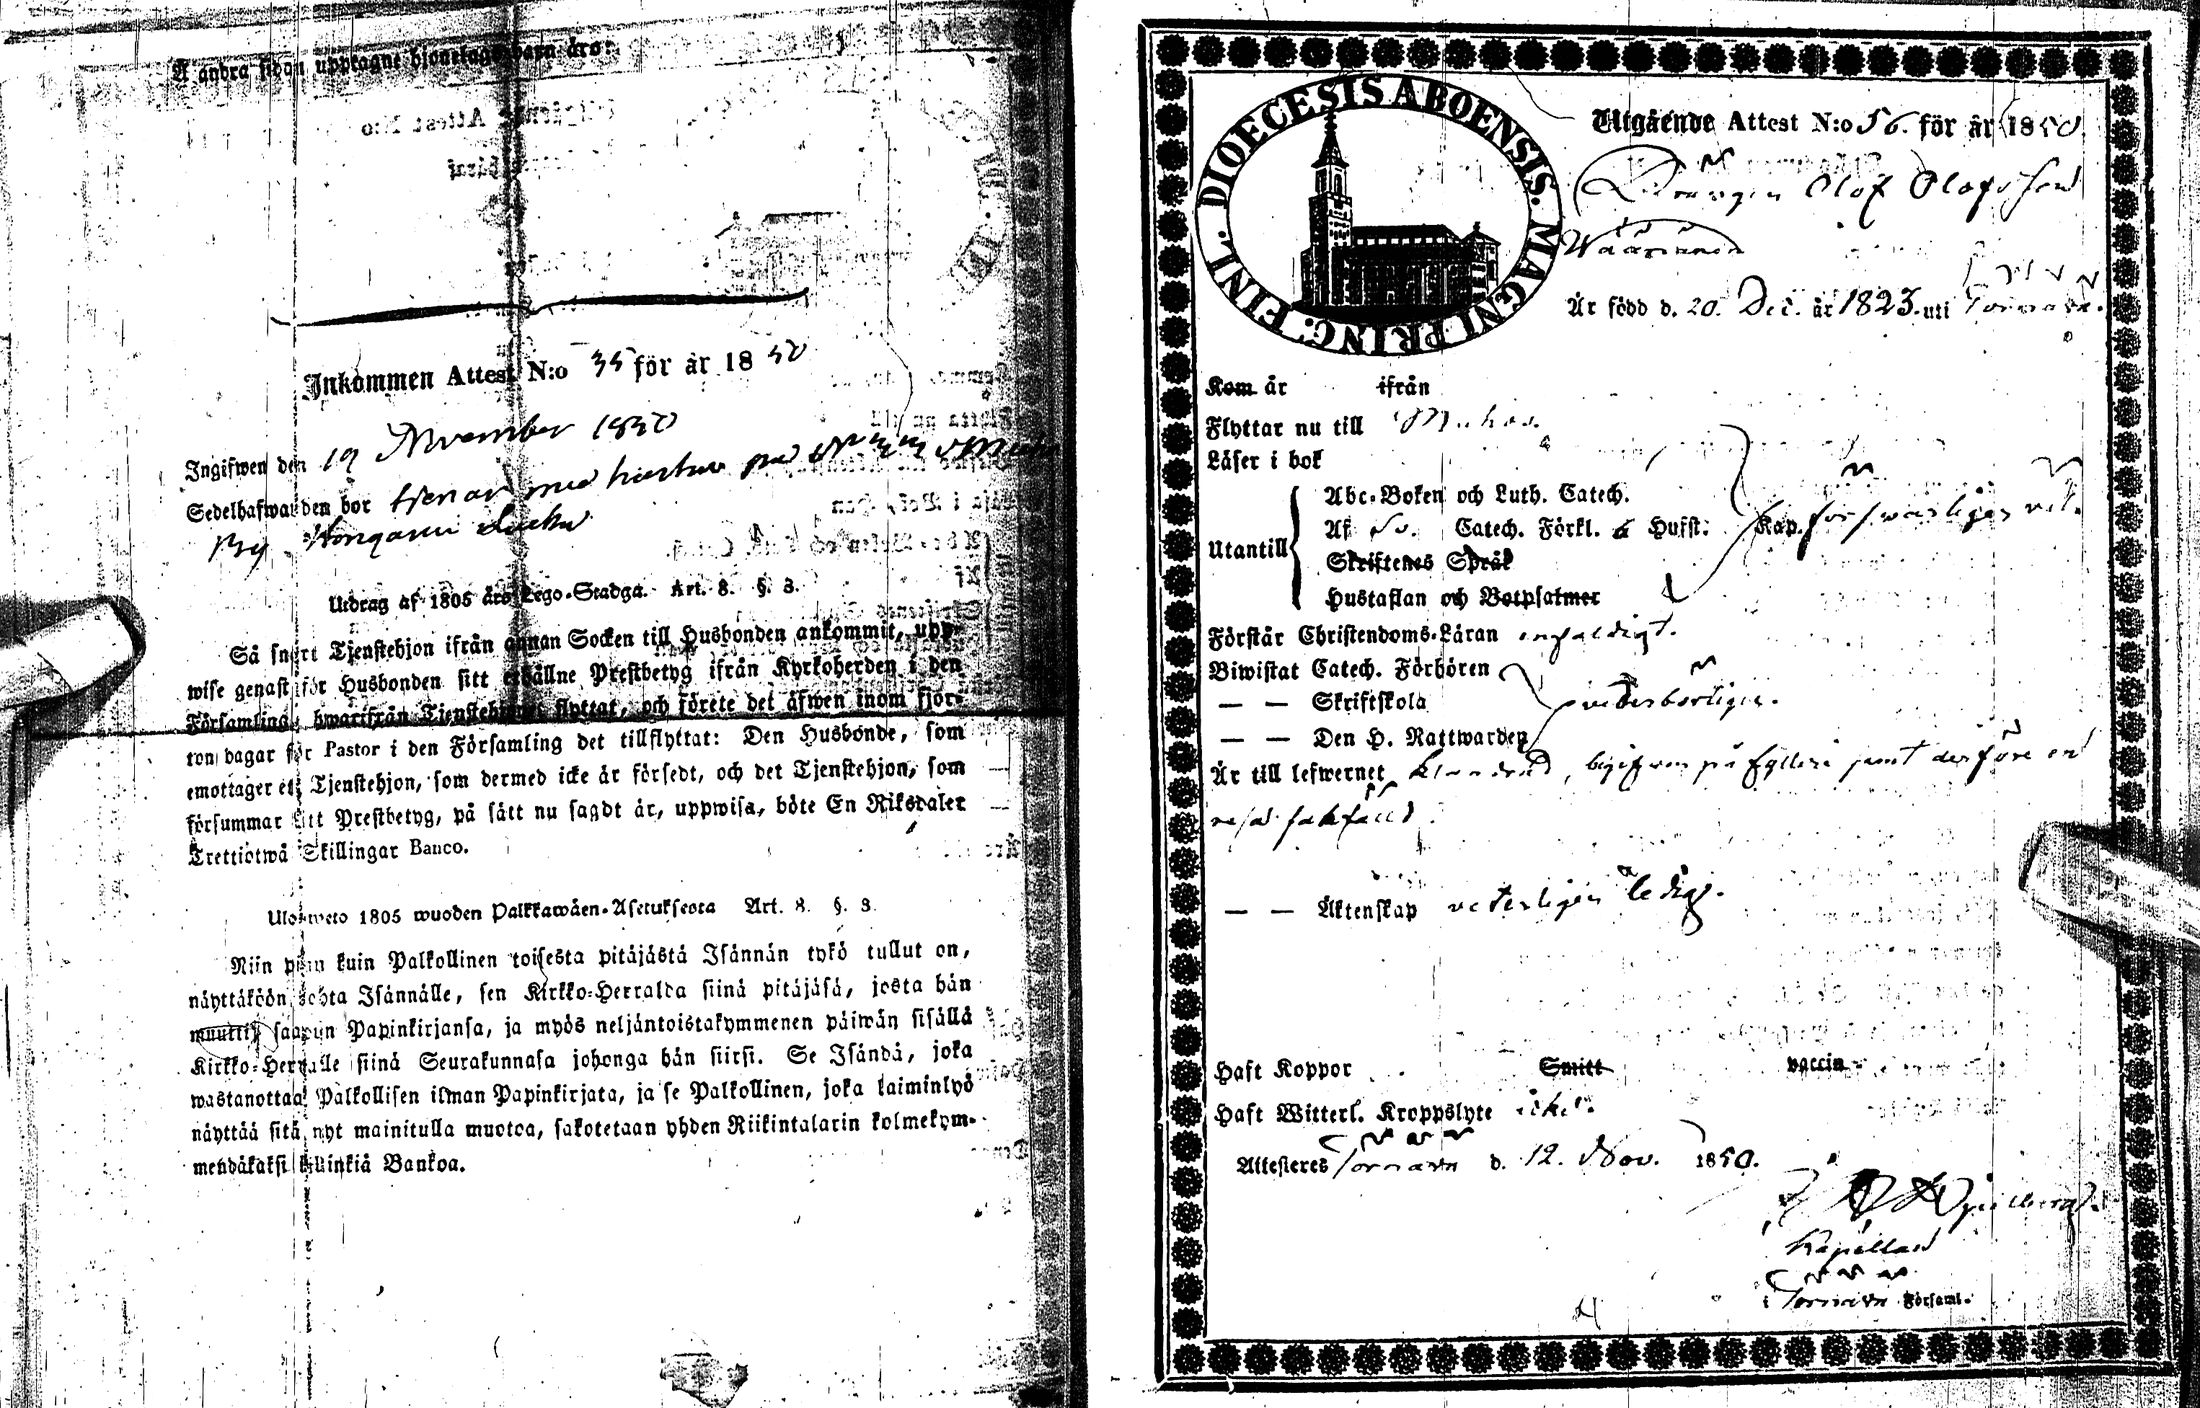 Å andra sidan upptagne hjonelags barn äro:
Inkommen Attest N:o 35 för år 1850
Ingifwen den 19 November 1850
Sedelhafwanden bor tjenar
By
Utdrag af 1805 års Lego-Stadga. Art. 8. §. 3.
Så snart Tjenstehjon ifrån annan Socken till Husbonden ankommit, upp-
wise genast för Husbonden sitt erhållne Prestbetyg ifrån Kyrkoherden i den
Församling, hwarifrån Tjenstehjonet flyttat, och förete det äfwen inom fjor-
ton dagar för Pastor i den Församling det tillflyttat: Den Husbonde, som
emottager ett Tjenstehjon, som dermed icke är försedt, och det Tjenstehjon, som
försummar sitt Prestbetyg, på sätt nu sagdt är, uppwisa, böte En Riksdaler
Trettiotwå Skillingar Banco.
Ulosweto 1805 wuoden Palkkawäen-Asetuksesta Art. 8. §. 3.
Niin pian kuin Palkollinen toisesta pitäjästä Isännän tykö tullut on,
näyttäköön kohta Isännälle, sen Kirkko-Herralda siinä pitäjäsä, josta hän
muutti, saadun Papinkirjansa, ja myös neljäntoistakymmenen päiwän sisällä
Kirkko-Herralle siinä Seurakunnasa johonga hän siirsi. Se Isändä, joka
wastanottaa Palkollisen ilman Papinkirjata, ja se Palkollinen, joka laiminlyö
näyttää sitä nyt mainitulla muotoa, sakotetaan yhden Riikintalarin kolmekym-
mendäkaksi killinkiä Bankoa.
FINL. DIOECESIS ABOENSIS. MAGNI PRINC:
Utgående Attest N:o 56. för år 1850.
Drängen Olof Olofsson
Wääränen
Är född d. 20. Dec. år 1823. uti Törnävä.
Kom år ifrån
Flyttar nu till Muhos.
Läser i bok
Abc-Boken och Luth. Catech.
Utantill Af Sv. Catech. Förkl. 6 Hufst: Kap. försvarligen
Skriftenes Språk
Hustaflan och Botpsalmer
Förstår Christendoms-Läran enfaldigt.
Biwistat Catech. Förhören
— — Skriftskola vederbörligen.
— — Den H. Nattwarden
Är till lefwernet klandrad, begifven på fylleri samt derföre en
resa sakfälld.
— — Äktenskap veterligen ledig.
Haft Koppor Smitt vaccin
Haft Witterl. Kroppslyte icke.
Attesteras Törnävä d. 12. Nov. 1850.
Kapellan
i Törnävä Församl.